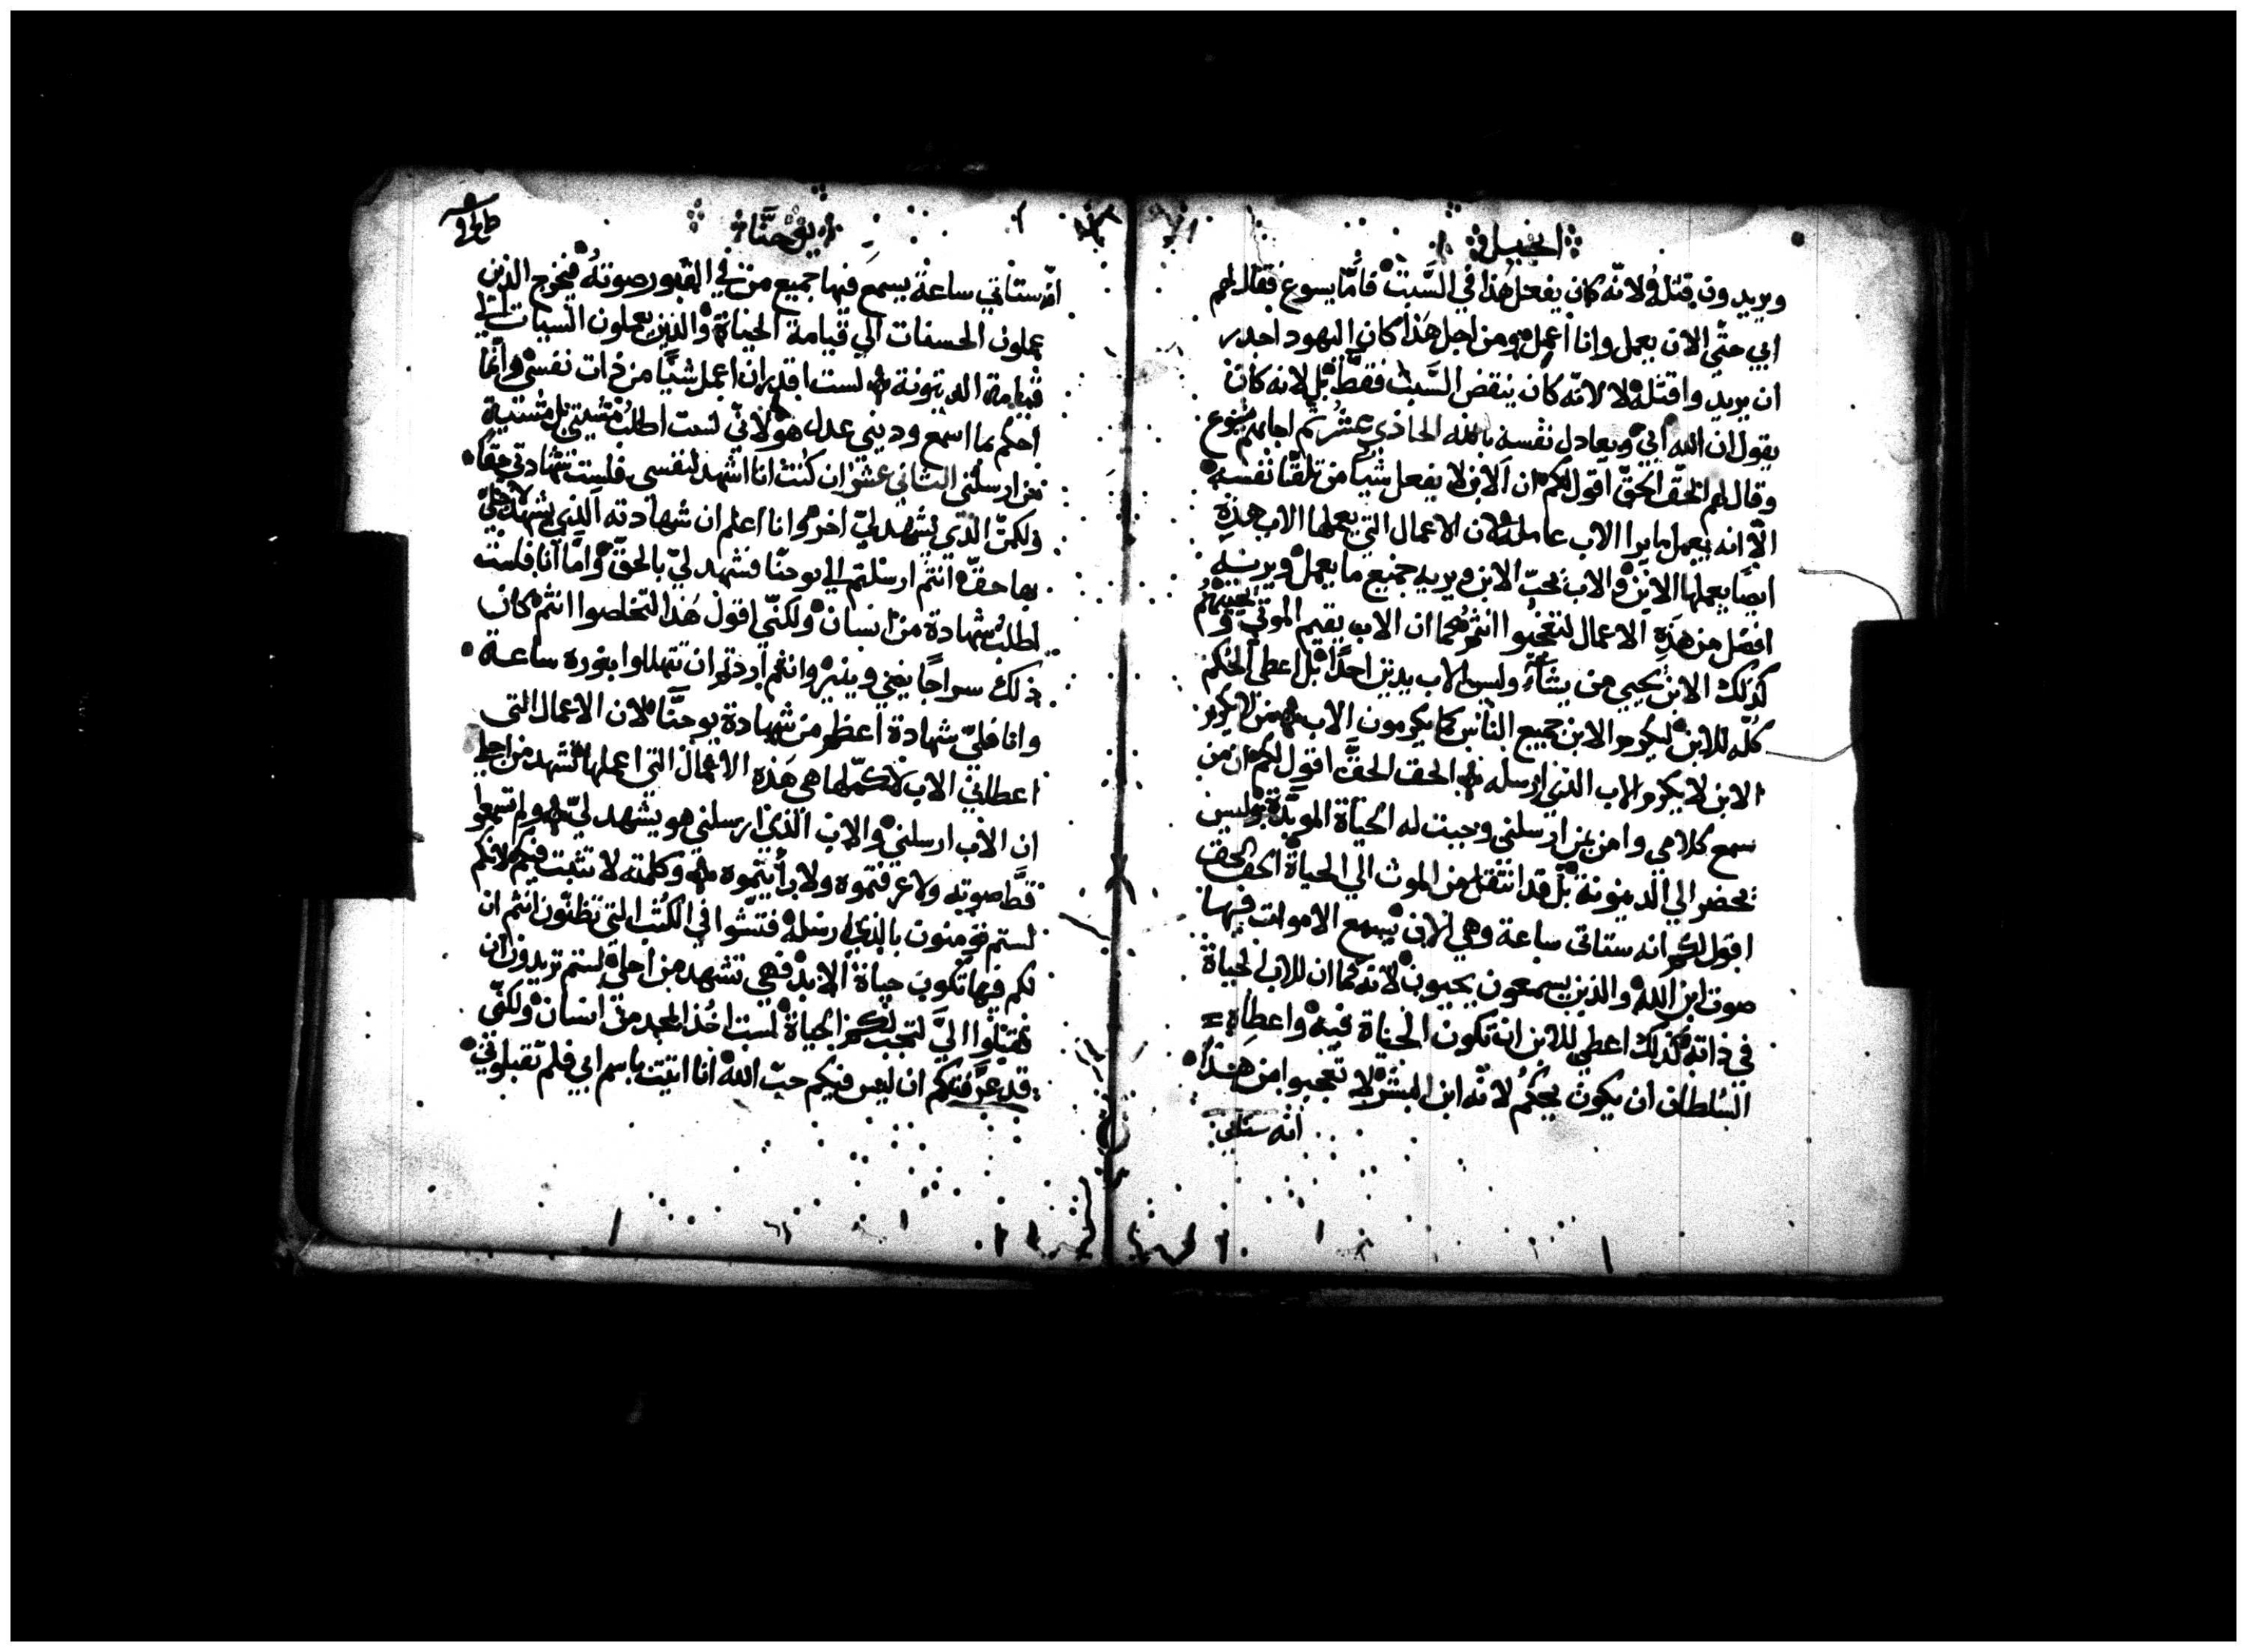 انجيل
ويريدون قتله ولانه كان يفعل هذا في السَّبت فامّا يسوع فقال لهم
ابي حتّي الان يعمل وانا اعمل ومن اجل هذا كان اليهود احدر
ان يريدوا قتله لا لانّه كان ينقض السَّبت فقطّ بل لانه كان
يقول ان الله ابي ويعادل نفسه بالله الحادي عشر ثم اجابهم يسوع
وقال لهم الحقّ الحقّ اقول لكم ان الابن لا يفعل شيا من تلقا نفسه
الّا انه يعمل ما يرا الاب عامله لان الاعمال التي يعملها الاب هذه
ايضًا يعملها الابن والاب يحبّ الابن ويريه جميع ما يعمل ويريه
افضل من هذه الاعمال لتعجبوا انتم كما ان الاب يقيم الموتي ويحييهم
كذلك الابن يحيي من يشآء وليس الاب يدين احدًا بل اعطي الحكم
كلّه للابن ليكرم الابن جميع الناس كما يكرمون الاب فمن لا يكرم
الابن لا يكرم الاب الذي ارسله الحق الحقّ اقول لكم ان من
سمع كلامي وامن بمن ارسلني وجبت له الحياة الموبّدة وليس
يحضر الي الدينونة بل قد انتقل من الموت الي الحياة الحق الحق
اقول لكم انه ستاتي ساعة وهي الان يسمع الاموات فيها
صوت ابن الله والذين يسمعون يحيون لانه كما ان للاب الحياة
في ذاته كذلك اعطي للابن ان تكون الحياة فيه واعطاه
السلطان ان يكون يحكم لانّه ابن البشر لا تعجبوا من هذا
انه ستاتي
يوحنَّا
انّه ستاتي ساعة يسمع فيها جميع من في القبور صوته فيخرج الذين
عملون الحسنات الي قيامة الحياة والذين يعملون السيات الي
قيامة الدينونة لست اقدر ان اعمل شيًا من ذات نفسي وانّما
احكم بما اسمع وديني عدل هو لانّي لست اطلب مشيتي بل مشية
من ارسلني الثاني عشر ان كنت انا اشهد لنفسي فليست شهادتي حقًا
ولكنّ الذي يشهد ليّ اخر وانا اعلم ان شهادته الذي يشهد لاجلي
بها حقّ انتم ارسلتم الي يوحنّا فشهد ليّ بالحقّ وامّا انا فلست
اطلب شهادة من انسان ولكنّي اقول هذا لتخلصوا انتم كان
ذلك سراجًا يضي وينير وانتم اردتم ان تتهللوا بنوره ساعة
وانا فليّ شهادة اعظم من شهادة يوحنَّا لان الاعمال التي
اعطاني الاب لاكمّلها هي هذه الاعمال التي اعملها تشهد من اجلي
ان الاب ارسلني والاب الذي ارسلني هو يشهد ليّ ولم تسمعوا
قطّ صوته ولا عرفتموه ولا رأيتموه وكلمته لا تثبت فيكم لانكم
لستم تومنون بالذي ارسله فتّشوا في الكتب التي تظنّون انتم ان
لكم فيها تكون حياة الابد فهي تشهد من اجلي لستم تريدون ان
تقبلوا اليّ لتجب لكم الحياة لست اخذ المجد من انسان ولكنّي
قد عرّفتكم ان ليس فيكم حبّ الله انا اتيت باسم ابي فلم تقبلوني